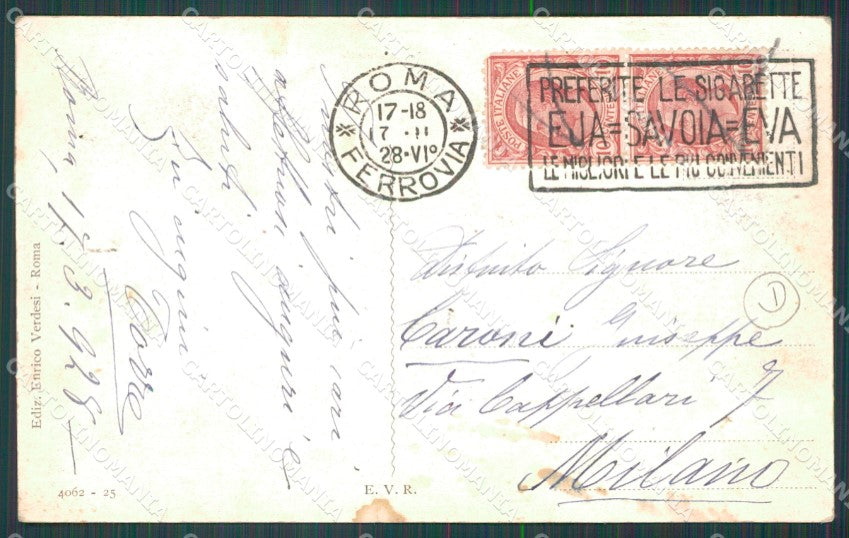 ROMA
17-18
28·VI°
FERROVIA
POSTE ITALIANE
PREFERITE LE SIGARETTE
EJA=SAVOIA=EVA
LE MIGLIORI E LE PIÙ CONVENIENTI
Roma, 17.3.928
più cari
affettuosi auguri e
saluti
Torre
Distinto Signore
Caroni Giuseppe
Via Cappellari 7
Milano
Ediz. Enrico Verdesi - Roma
4062 - 25
E. V. R.
CARTOLINOMANIA